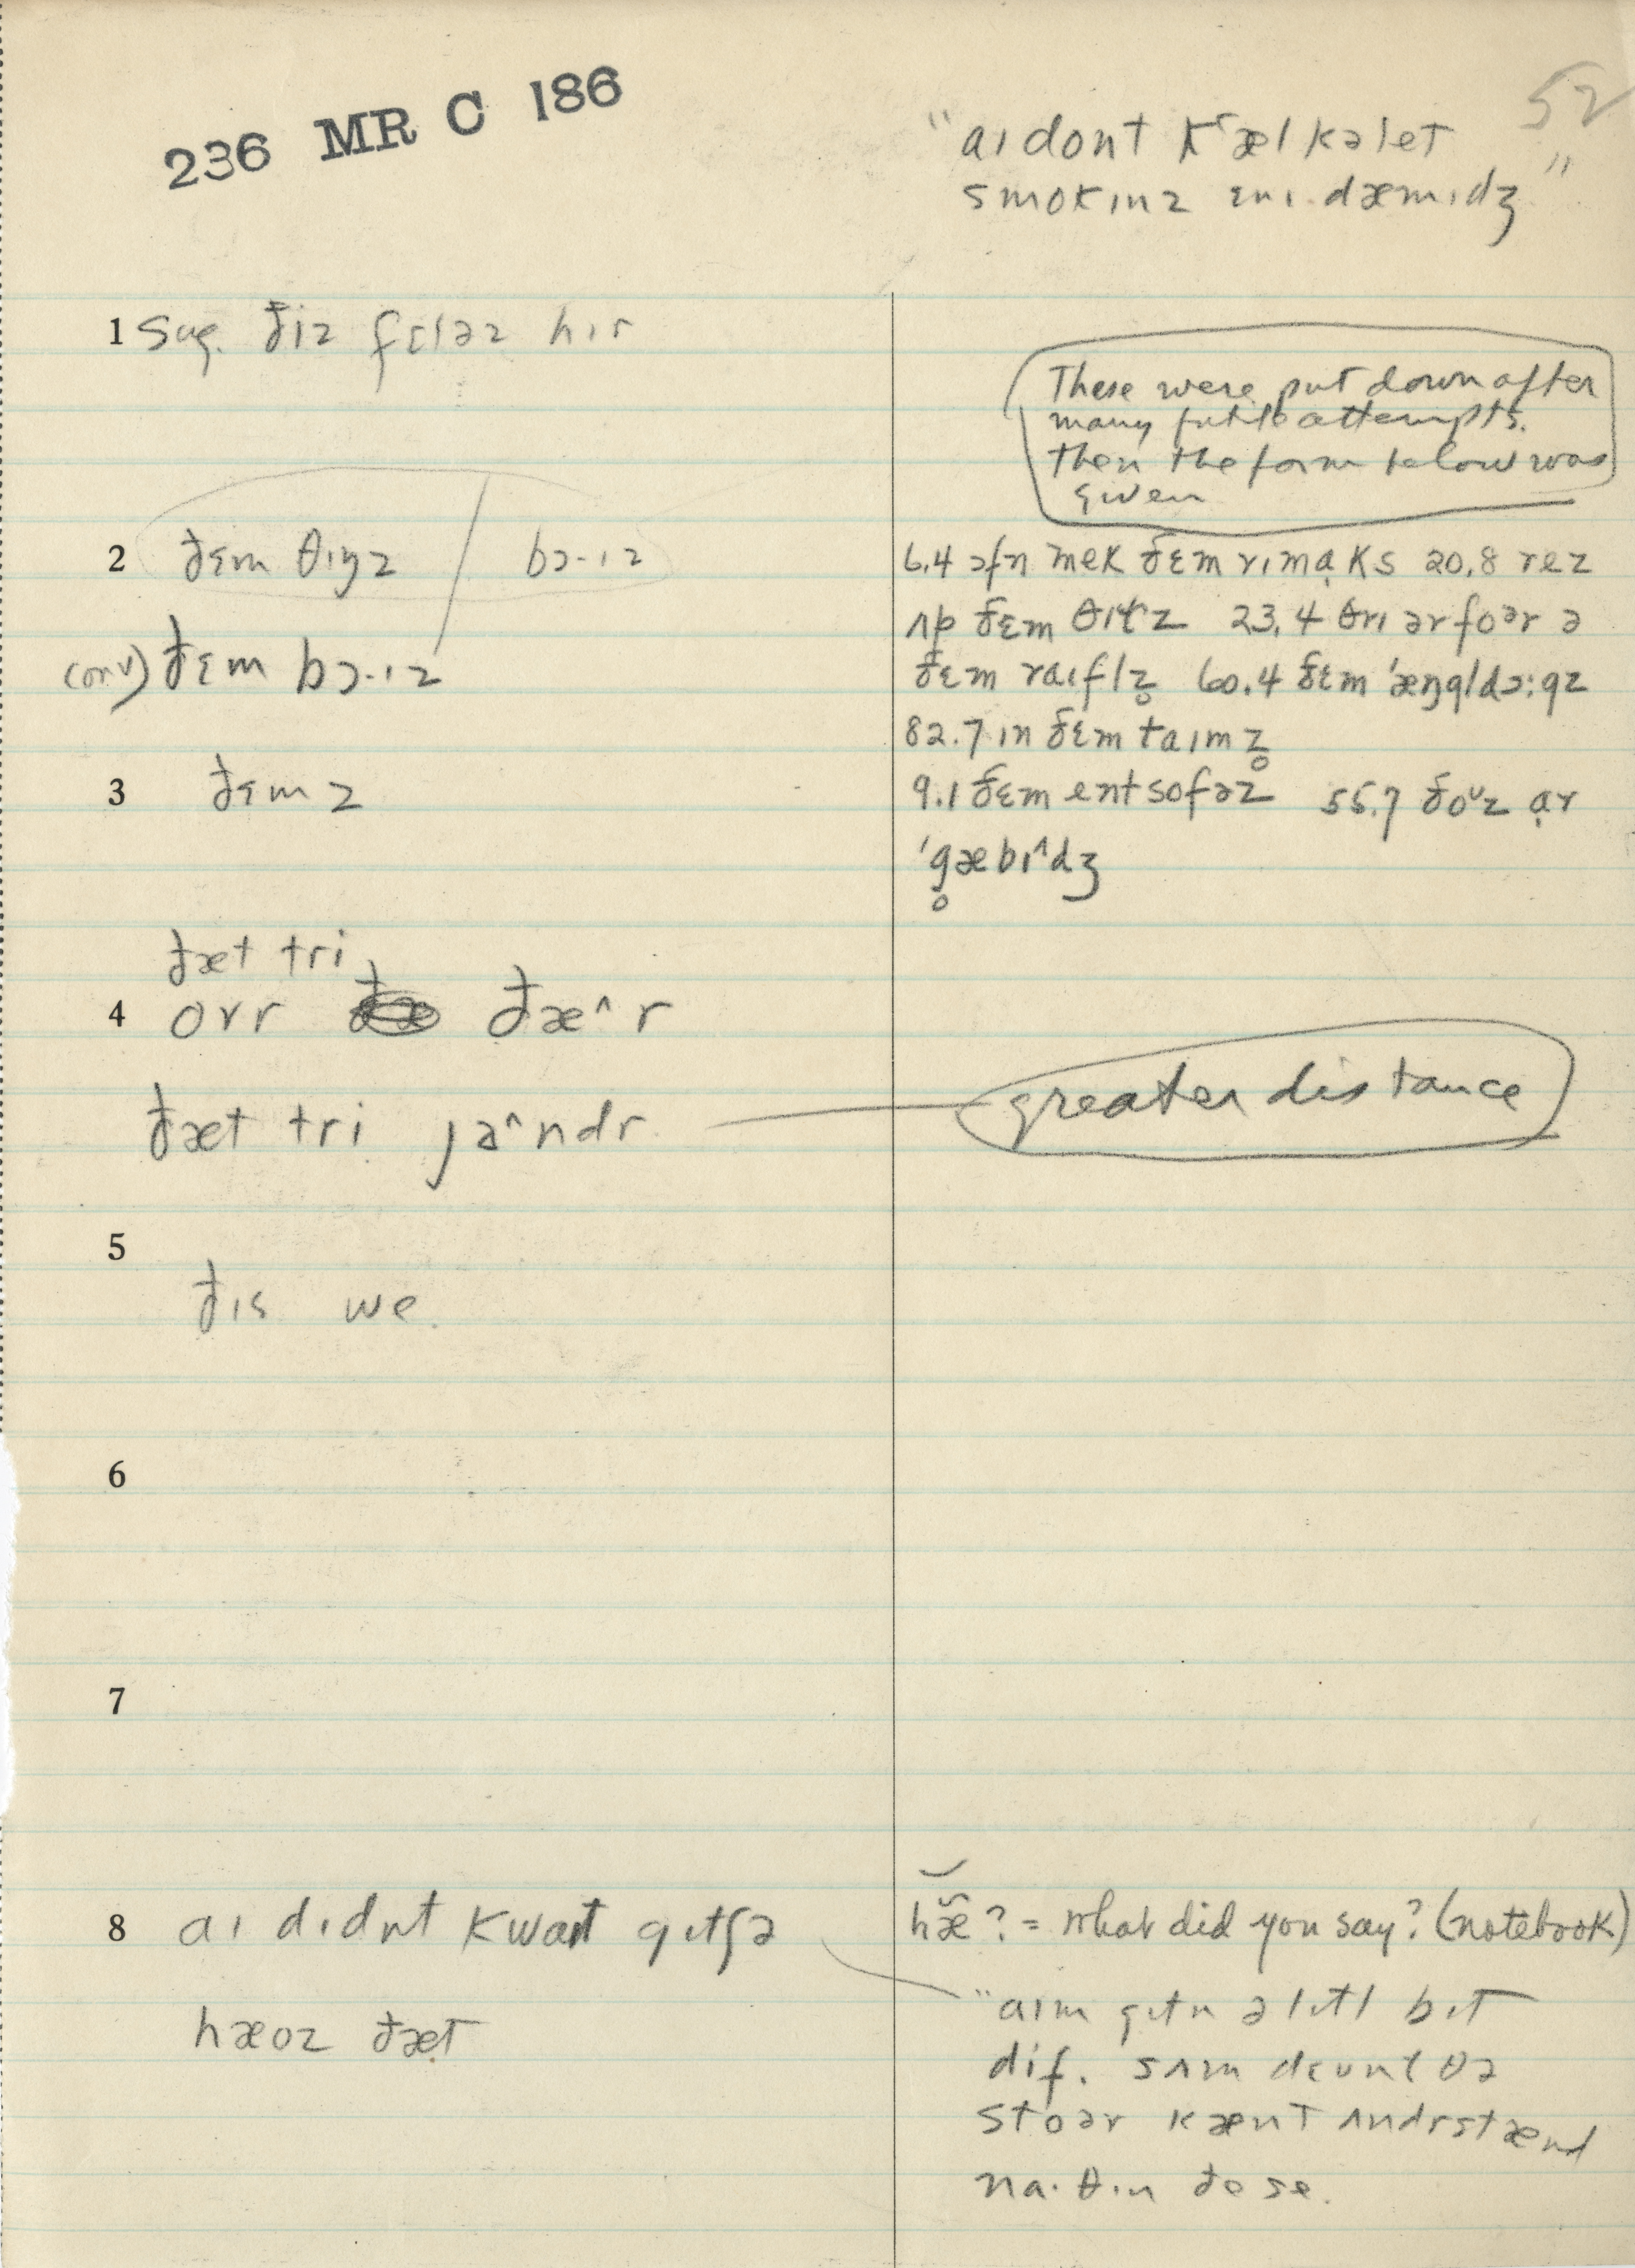 236 MR C 186
52
"aɪ dont kʽælkəlet
smokɪnz ɛnɪ dæmɪdʒ"
1 Sug. ðiz fɛləz hɪr
These were put down after
many futile attempts.
Then the form below was
given
2 ðɛm θɪŋz / bɔ·ɪz
(cnv) ðɛm bɔ·ɪz
6.4 ɔfn mek ðɛm rɪmạks 20.8 rez
ʌp ðɛm 23.4 θrɪ ər foər ə
ðɛm raɪflz̥ 60.4 ðɛm ˈæŋgldɔ:gz
82.7 ɪn ðɛm taɪmz̥
3 ðɛmz
9.1 ðɛm entsofəz 55.7 ðoᵘz ạr
ˈg̥æbɪ^dʒ
ðæt tri
4 ovr ðæ^r
ðæt tri jə^ndr
greater distance
5
ðɪs we
6
7
8 aɪ dɪdnt kwaɪt gɪtʃə
hæoz ðæt
hæ̆̃? = what did you say? (notebook)
"aɪm gɪtn ə lɪtl bɪt
dif. sʌm dɛʊn t ðə
stoər kænt ʌndrstænd
na·θɪn ðe se.